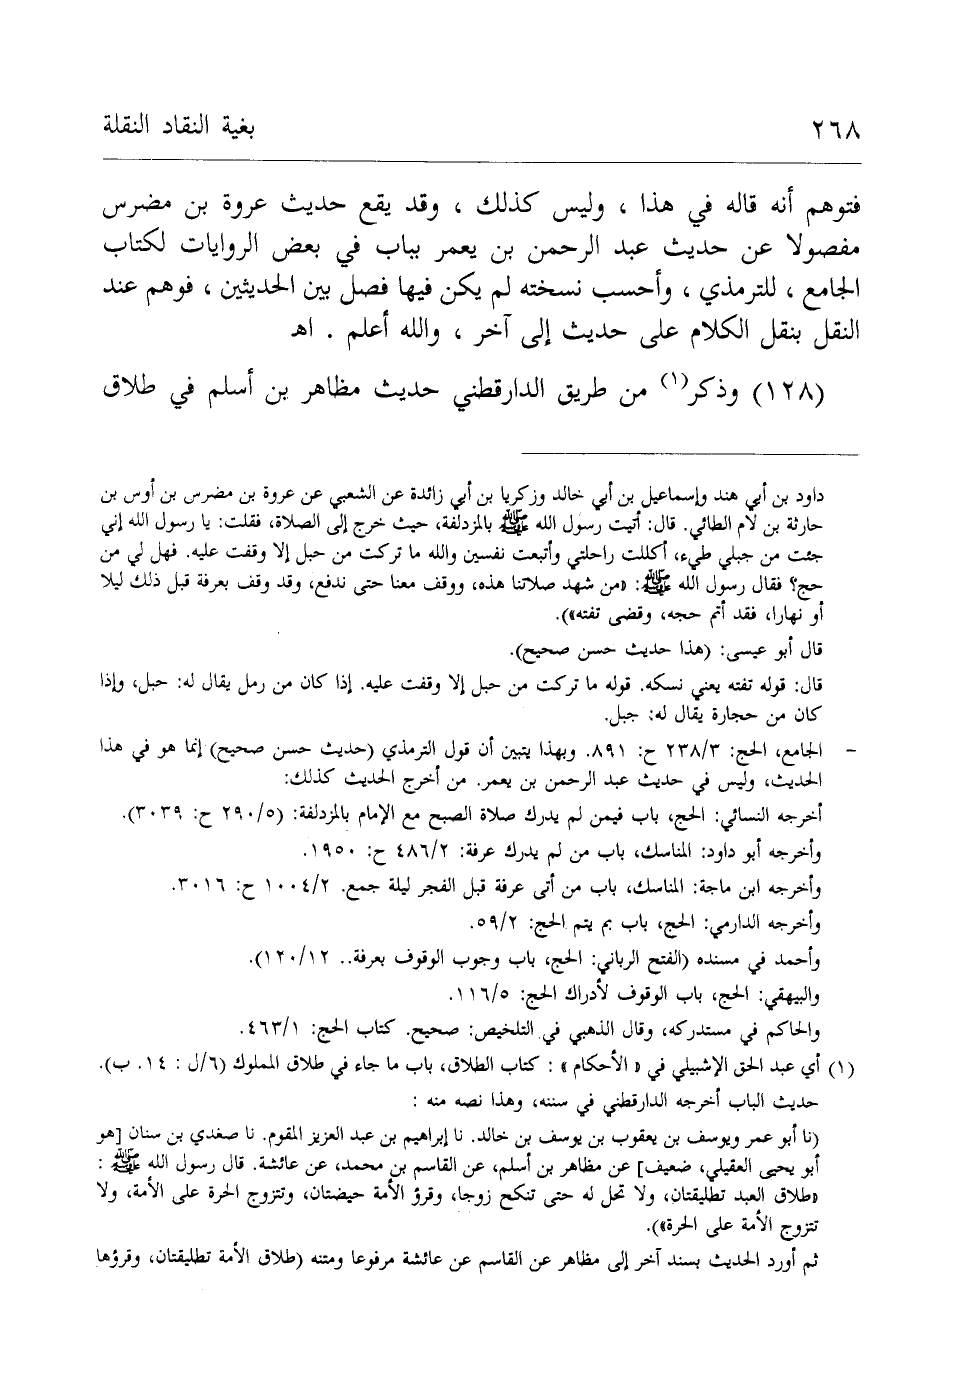 ٢٦٨ بغية النقاد النقلة
فتوهم أنه قاله في هذا ، وليس كذلك ، وقد يقع حديث عروة بن مضرس
مفصولا عن حديث عبد الرحمن بن يعمر بباب في بعض الروايات لكتاب
الجامع ، للترمذي ، وأحسب نسخته لم يكن فيها فصل بين الحديثين ، فوهم عند
النقل بنقل الكلام على حديث إلى آخر ، والله أعلم . اهـ
(١٢٨) وذكر(١) من طريق الدارقطني حديث مظاهر بن أسلم في طلاق
داود بن أبي هند وإسماعيل بن أبي خالد وزكريا بن أبي زائدة عن الشعبي عن عروة بن مضرس بن أوس بن
حارثة بن لأم الطائي. قال: أتيت رسول الله ﷺ بالمزدلفة، حيث خرج إلى الصلاة، فقلت: يا رسول الله إني
جئت من جبلي طيء، أكللت راحلتي وأتبعت نفسين والله ما تركت من حبل إلا وقفت عليه. فهل لي من
حج؟ فقال رسول الله ﷺ: «من شهد صلاتنا هذه، ووقف معنا حتى ندفع، وقد وقف بعرفة قبل ذلك ليلا
أو نهارا، فقد أتم حجه، وقضى تفثه»).
قال أبو عيسى: (هذا حديث حسن صحيح).
قال: قوله تفثه يعني نسكه. قوله ما تركت من حبل إلا وقفت عليه. إذا كان من رمل يقال له: حبل، وإذا
كان من حجارة يقال له: جبل.
- الجامع، الحج: ٢٣٨/٣ ح: ٨٩١. وبهذا يتبين أن قول الترمذي (حديث حسن صحيح) إنما هو في هذا
الحديث، وليس في حديث عبد الرحمن بن يعمر. من أخرج الحديث كذلك:
أخرجه النسائي: الحج، باب فيمن لم يدرك صلاة الصبح مع الإمام بالمزدلفة: (٢٩٠/٥ ح: ٣٠٣٩).
وأخرجه أبو داود: المناسك، باب من لم يدرك عرفة: ٤٨٦/٢ ح: ١٩٥٠.
وأخرجه ابن ماجة: المناسك، باب من أتى عرفة قبل الفجر ليلة جمع. ١٠٠٤/٢ ح: ٣٠١٦.
وأخرجه الدارمي: الحج، باب بم يتم الحج: ٥٩/٢.
وأحمد في مسنده (الفتح الرباني: الحج، باب وجوب الوقوف بعرفة.. ١٢٠/١٢).
والبيهقي: الحج، باب الوقوف لأدراك الحج: ١١٦/٥.
والحاكم في مستدركه، وقال الذهبي في التلخيص: صحيح. كتاب الحج: ٤٦٣/١.
(١) أي عبد الحق الإشبيلي في « الأحكام » : كتاب الطلاق، باب ما جاء في طلاق المملوك (٦/ل : ١٤. ب).
حديث الباب أخرجه الدارقطني في سننه، وهذا نصه منه :
(نا أبو عمر ويوسف بن يعقوب بن يوسف بن خالد. نا إبراهيم بن عبد العزيز المقوم. نا صغدي بن سنان [هو
أبو يحيى العقيلي، ضعيف] عن مظاهر بن أسلم، عن القاسم بن محمد، عن عائشة. قال رسول الله ﷺ :
«طلاق العبد تطليقتان، ولا تحل له حتى تنكح زوجا، وقرؤ الأمة حيضتان، وتتزوج الحرة على الأمة، ولا
تتزوج الأمة على الحرة»).
ثم أورد الحديث بسند آخر إلى مظاهر عن القاسم عن عائشة مرفوعا ومتنه (طلاق الأمة تطليقتان، وقرؤها